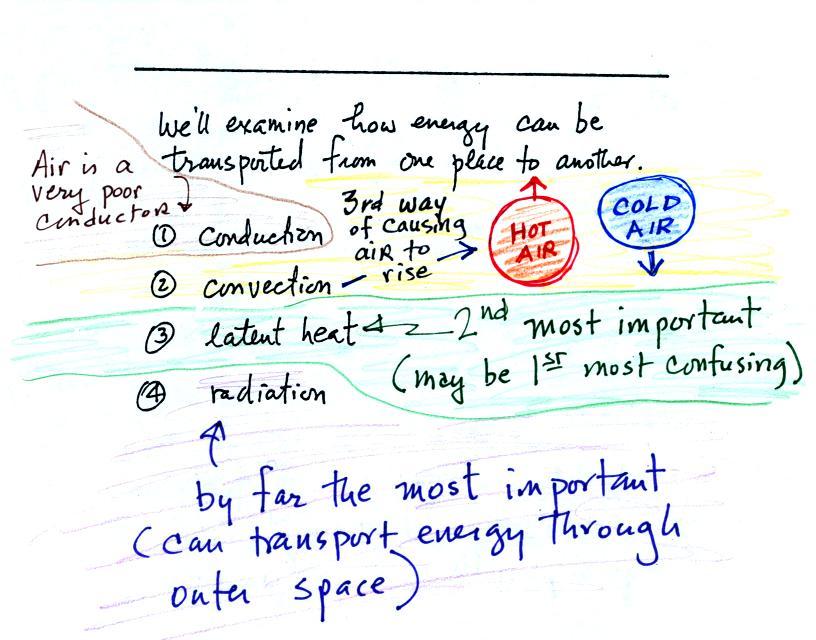 We'll examine how energy can be
transported from one place to another.
Air is a
very poor
conductor
① conduction
3rd way
of causing
air to
rise
HOT
AIR
COLD
AIR
② convection
③ latent heat
2nd most important
(may be 1st most confusing)
④ radiation
by far the most important
(can transport energy through
outer space)